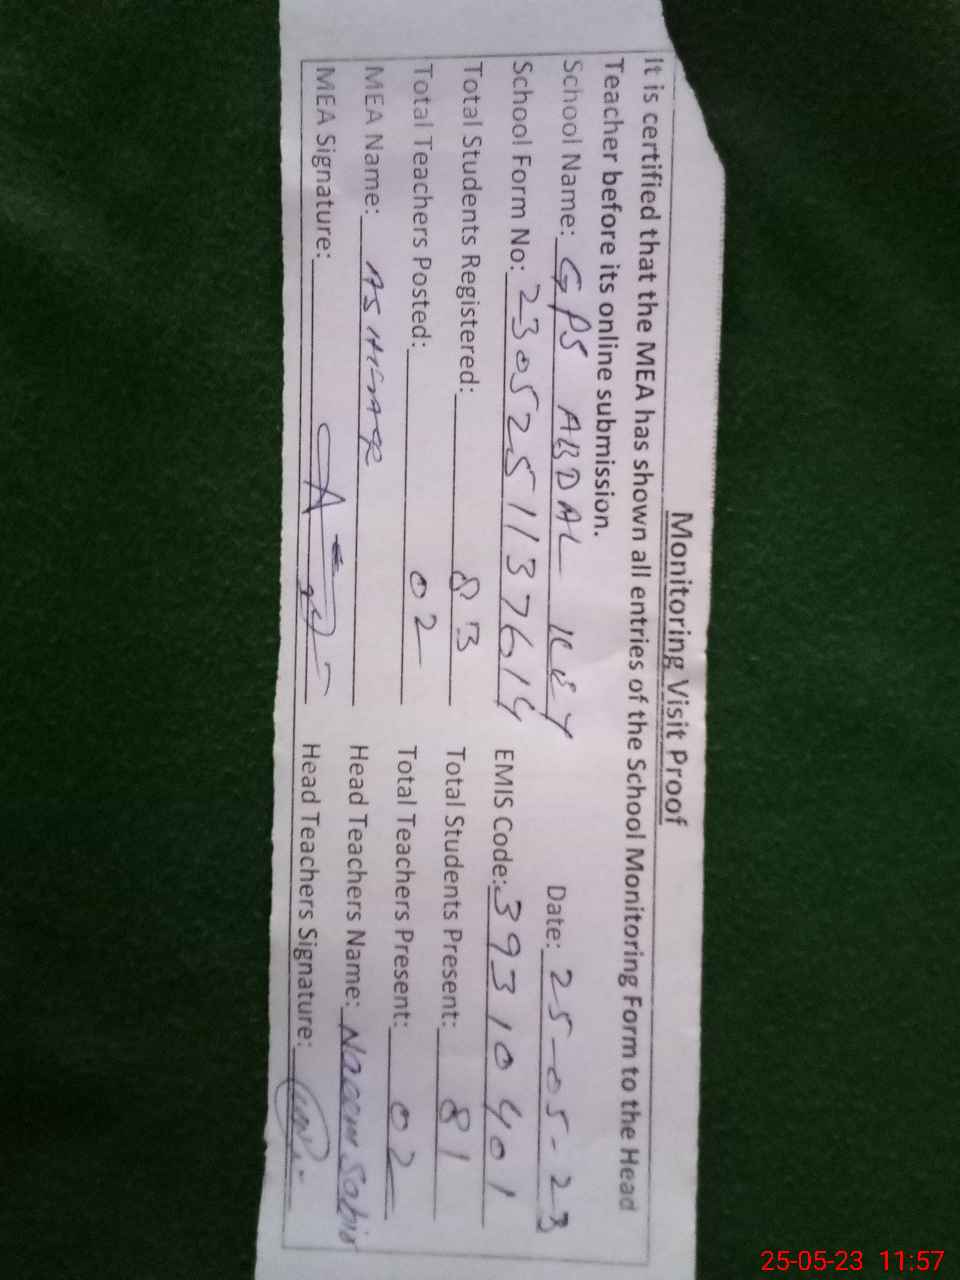 Monitoring Visit Proof
It is certified that the MEA has shown all entries of the School Monitoring Form to the Head
Teacher before its online submission.
School Name: GPS ABDAL Date: 25-05-23
School Form No: 2305251137614 EMIS Code: 39310401
Total Students Registered: 83 Total Students Present: 81
Total Teachers Posted: 02 Total Teachers Present: 02
MEA Name: Head Teachers Name: Naeem Sabir
MEA Signature: Head Teachers Signature:
25-05-23 11:57